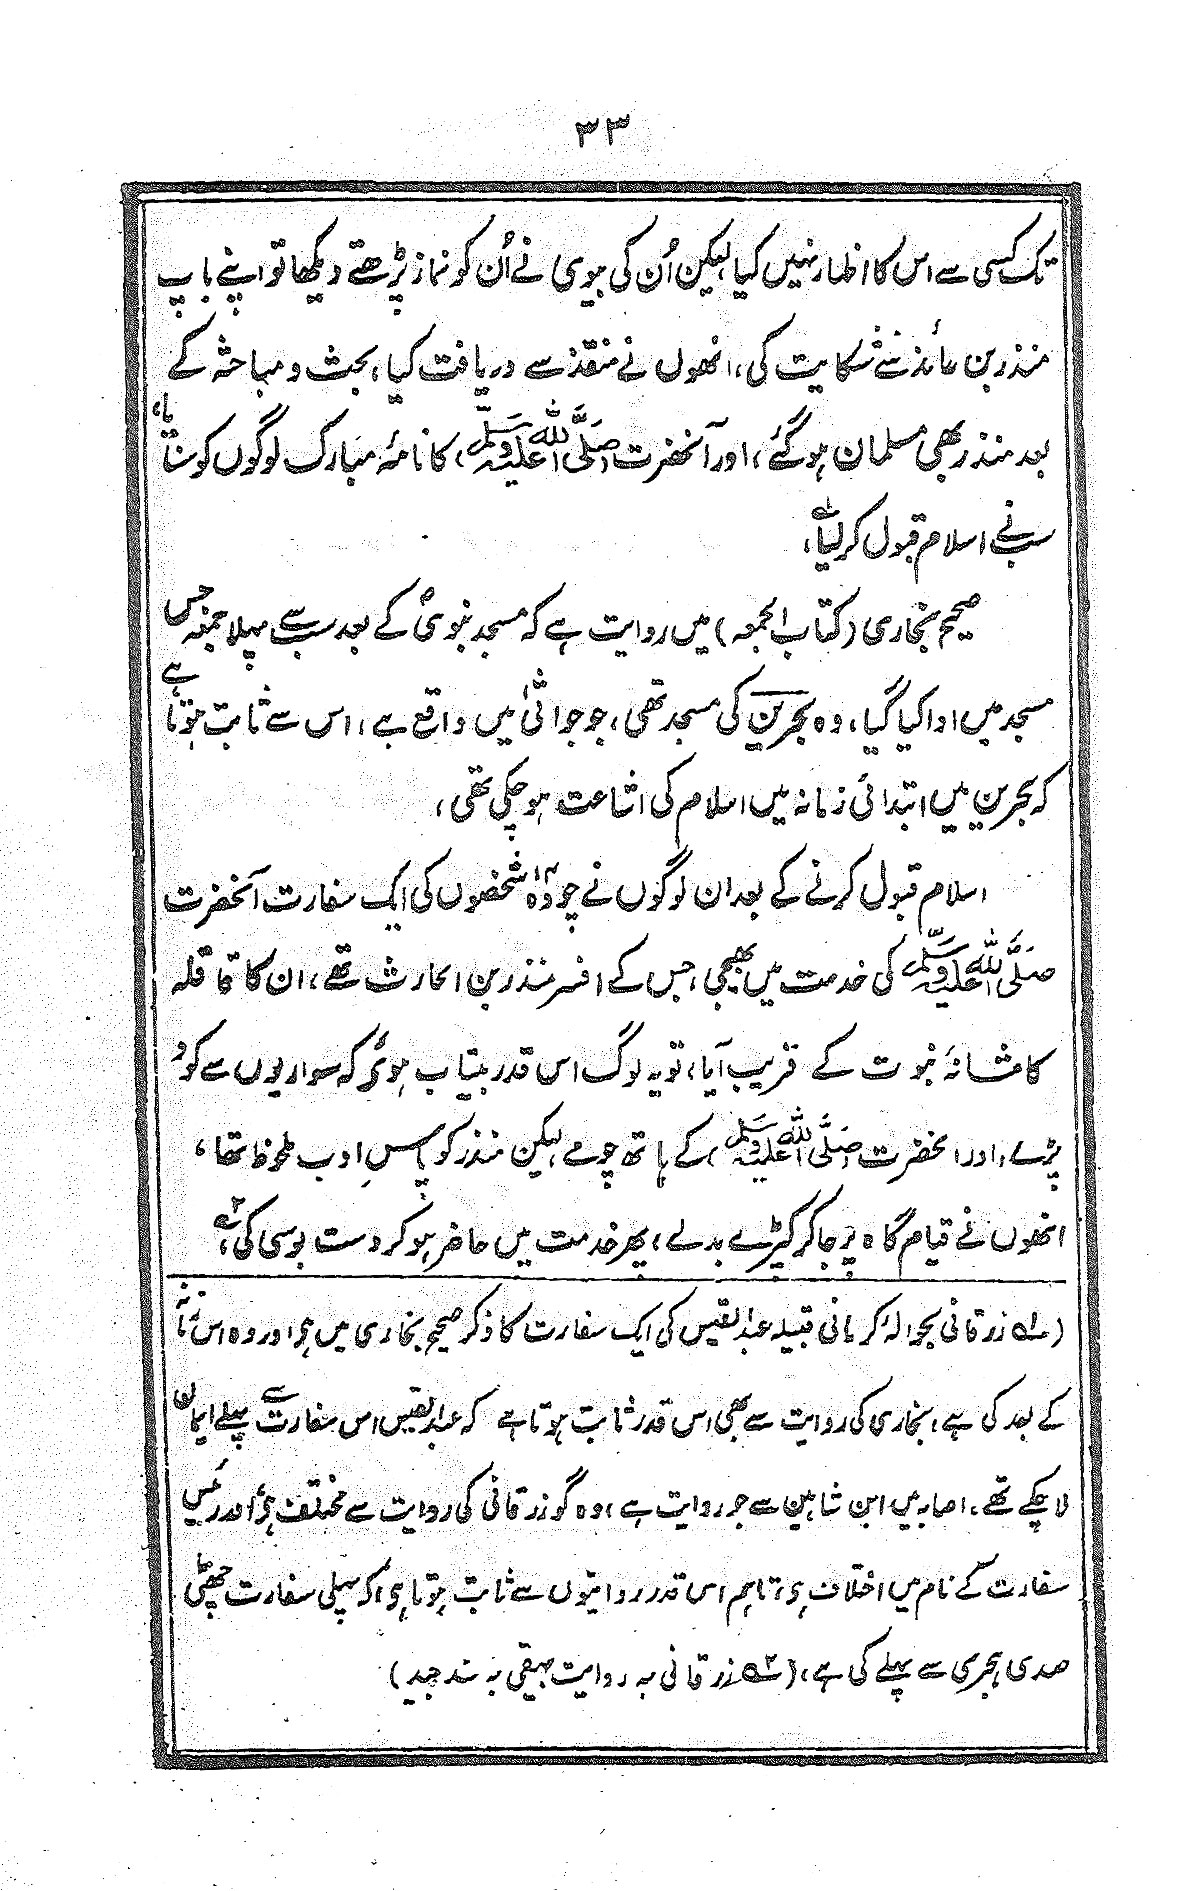 ۳۳
تک کسی سے اس کا اظہار نہیں کیا، لیکن اُن کی بیوی نے اُن کو نماز پڑھتے دیکھا تو اپنے باپ
منذر بن عائذ سے شکایت کی، انھوں نے منقذ سے دریافت کیا، بحث و مباحثہ کے
بعد منذر بھی مسلمان ہو گئے، اور آنحضرت صَلَّی اللہُ عَلَیْہِ وَسَلَّم، کا نامۂ مبارک لوگوں کو سنایا،
سب نے اسلام قبول کر لیا،
صحیح بخاری (کتاب الجمعہ) میں روایت ہے کہ مسجد نبوی کے بعد سب سے پہلا جمعہ جس
مسجد میں ادا کیا گیا، وہ بحرین کی مسجد تھی، جو جواثیٰ میں واقع ہے، اس سے ثابت ہوتا ہے
کہ بحرین میں ابتدائی زمانہ میں اسلام کی اشاعت ہو چکی تھی،
اسلام قبول کرنے کے بعد ان لوگوں نے چودہ ۱۴ شخصوں کی ایک سفارت آنحضرت
صَلَّی اللہُ عَلَیْہِ وَسَلَّم کی خدمت میں بھیجی، جس کے افسر منذر بن الحارث تھے، ان کا قافلہ
کاشانۂ نبوت کے قریب آیا، تو یہ لوگ اس قدر بیتاب ہوئے کہ سواریوں سے کود
پڑے، اور آنحضرت صَلَّی اللہُ عَلَیْہِ وَسَلَّم، کے ہاتھ چومے، لیکن منذر کو پاسِ ادب ملحوظ تھا،
انھوں نے قیام گاہ پر جا کر کپڑے بدلے، پھر خدمت میں حاضر ہو کر دست بوسی کی، ۲؎
(۱؎ زرقانی بحوالۂ کرمانی قبیلہ عبدالقیس کی ایک سفارت کا ذکر صحیح بخاری میں ہی اور وہ اس زمانہ
کے بعد کی ہے، بخاری کی روایت سے بھی اس قدر ثابت ہوتا ہے کہ عبدالقیس اس سفارت سے پہلے ایمان
لا چکے تھے، اصابہ میں ابن شاہین سے جو روایت ہے، وہ گو زرقانی کی روایت سے مختلف ہی اور رئیس
سفارت کے نام میں اختلاف ہی، تاہم اس قدر روایتوں سے ثابت ہوتا ہی کہ پہلی سفارت چھٹی
صدی ہجری سے پہلے کی ہے، (۲؎ زرقانی بہ روایت بیہقی بہ سند جید)